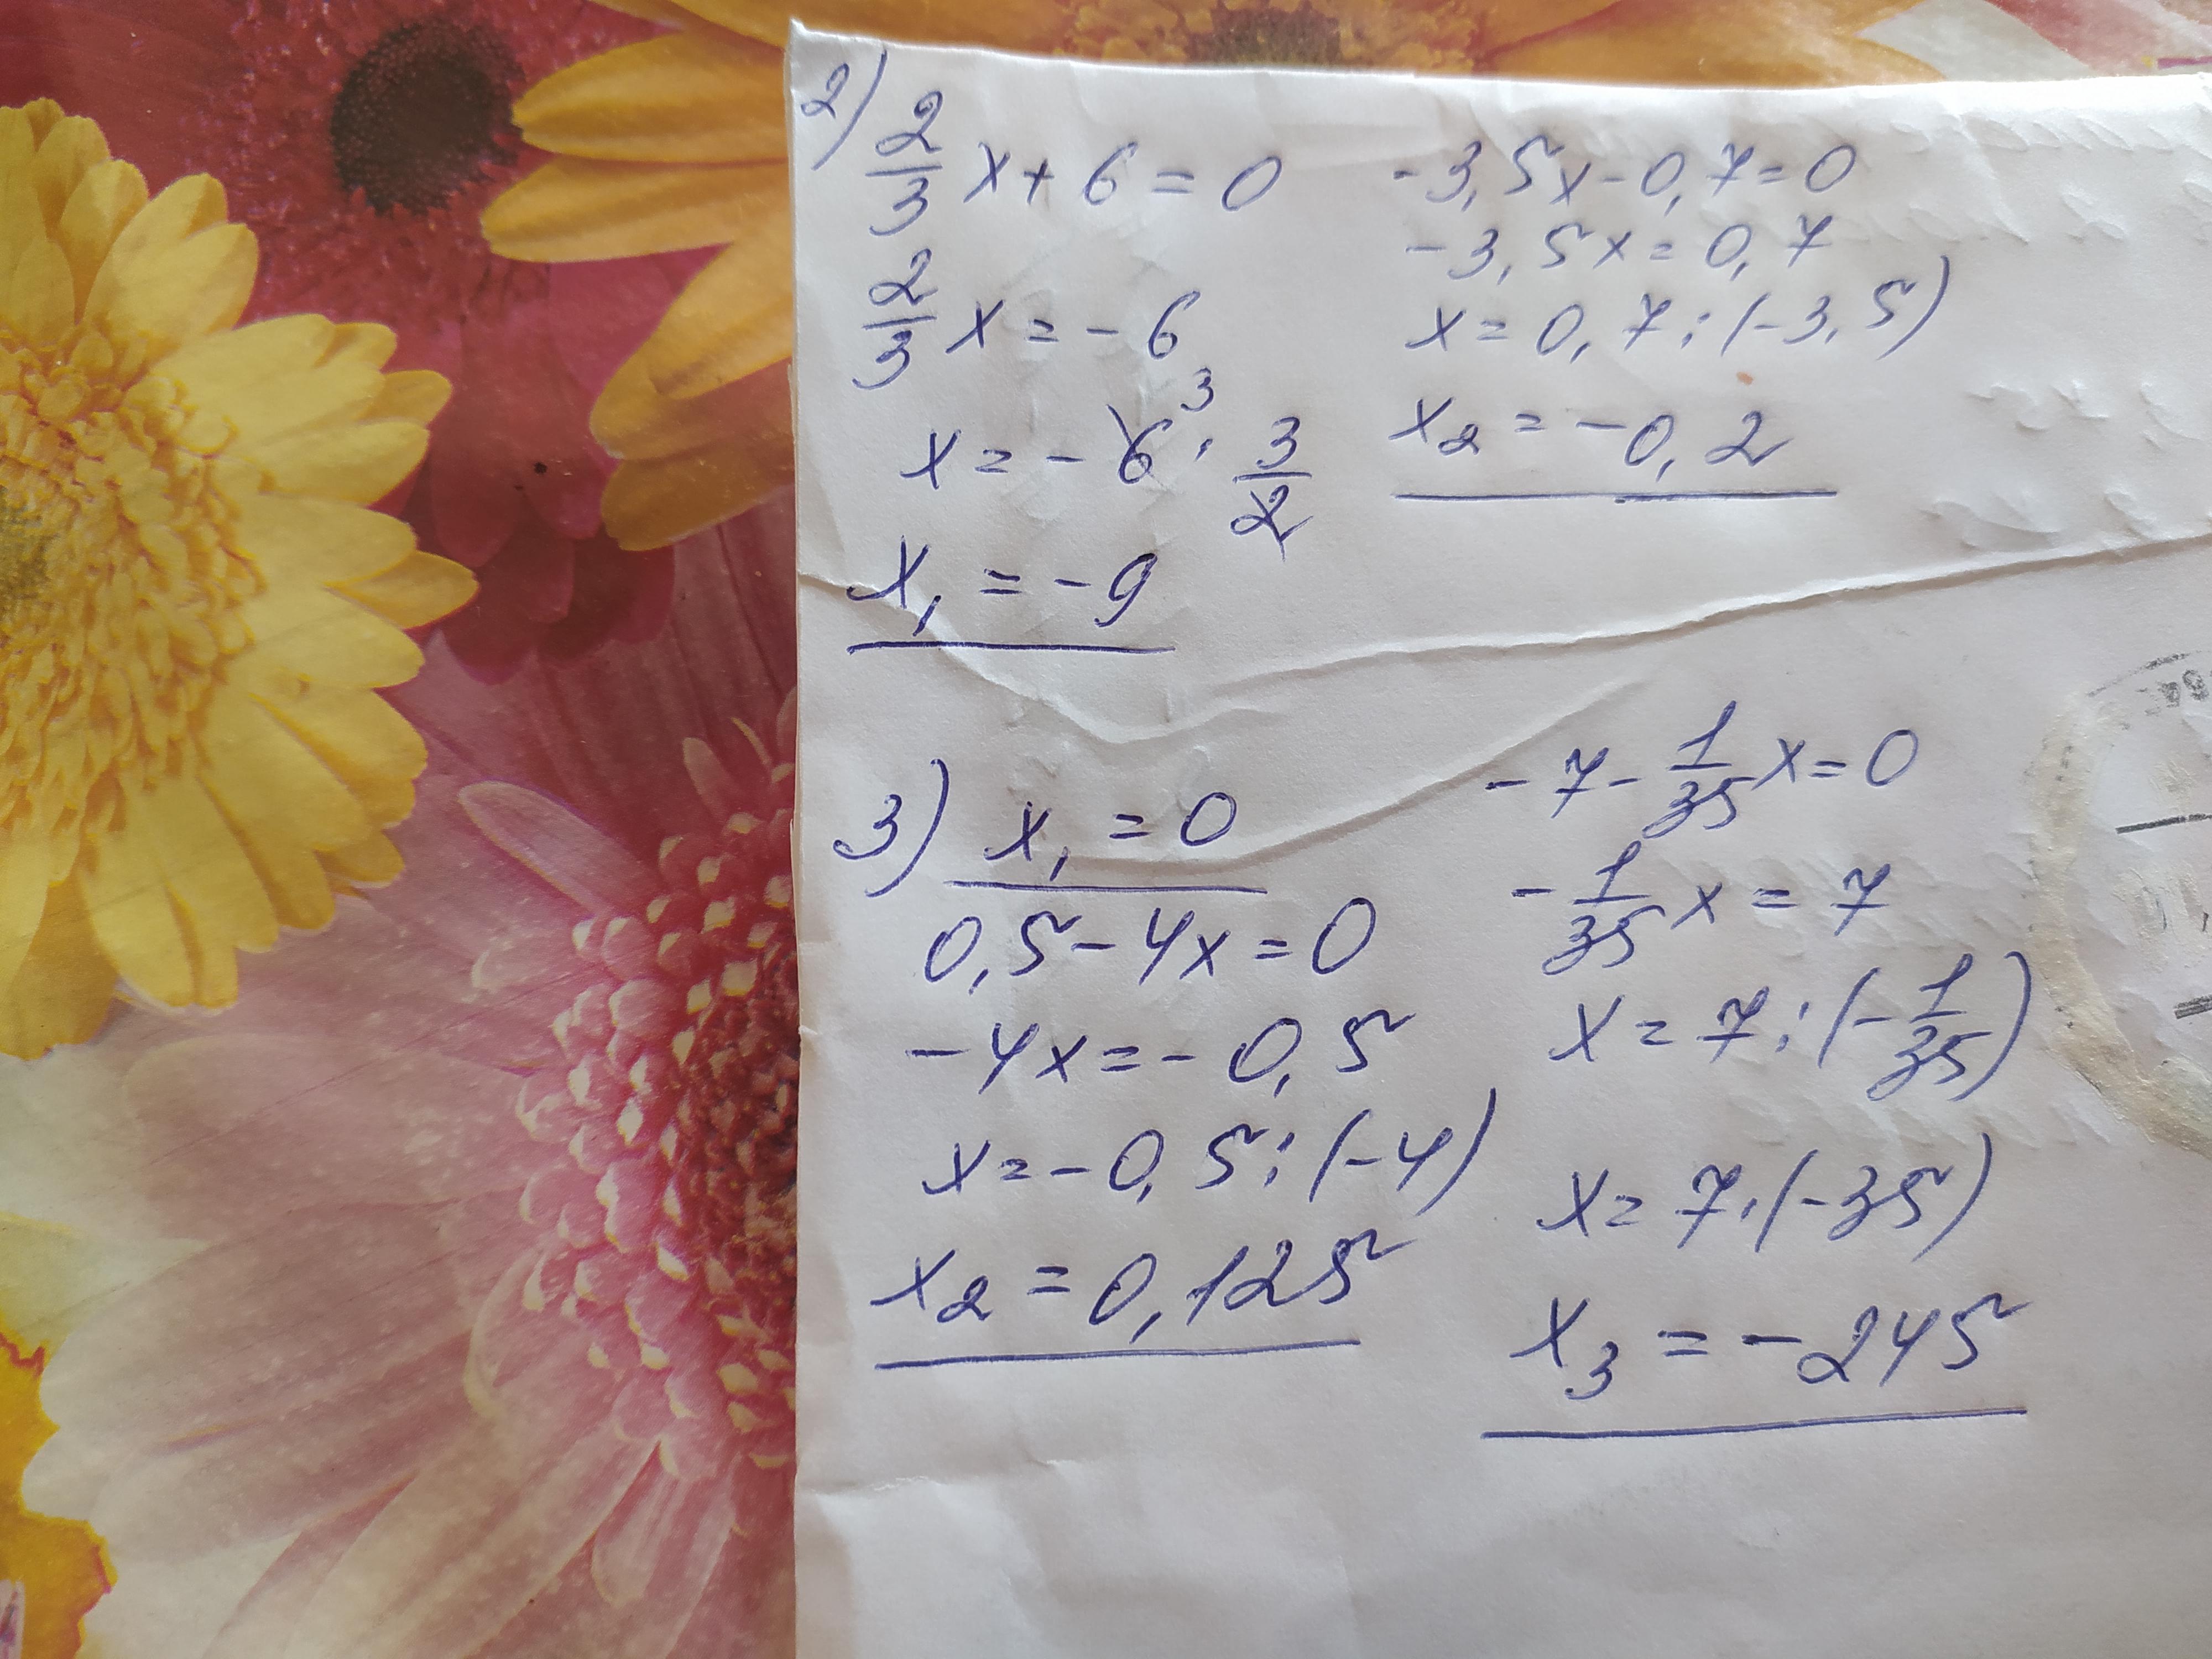 2)
2/3 x + 6 = 0
2/3 x = - 6
x = - 6³ · 3/2
x₁ = - 9
-3,5x - 0,7 = 0
-3,5x = 0,7
x = 0,7 : (-3,5)
x₂ = - 0,2
3) x₁ = 0
0,5 - 4x = 0
-4x = - 0,5
x = - 0,5 : (-4)
x₂ = 0,125
-7 - 1/35 x = 0
- 1/35 x = 7
x = 7 : (- 1/35)
x = 7 · (-35)
x₃ = - 245